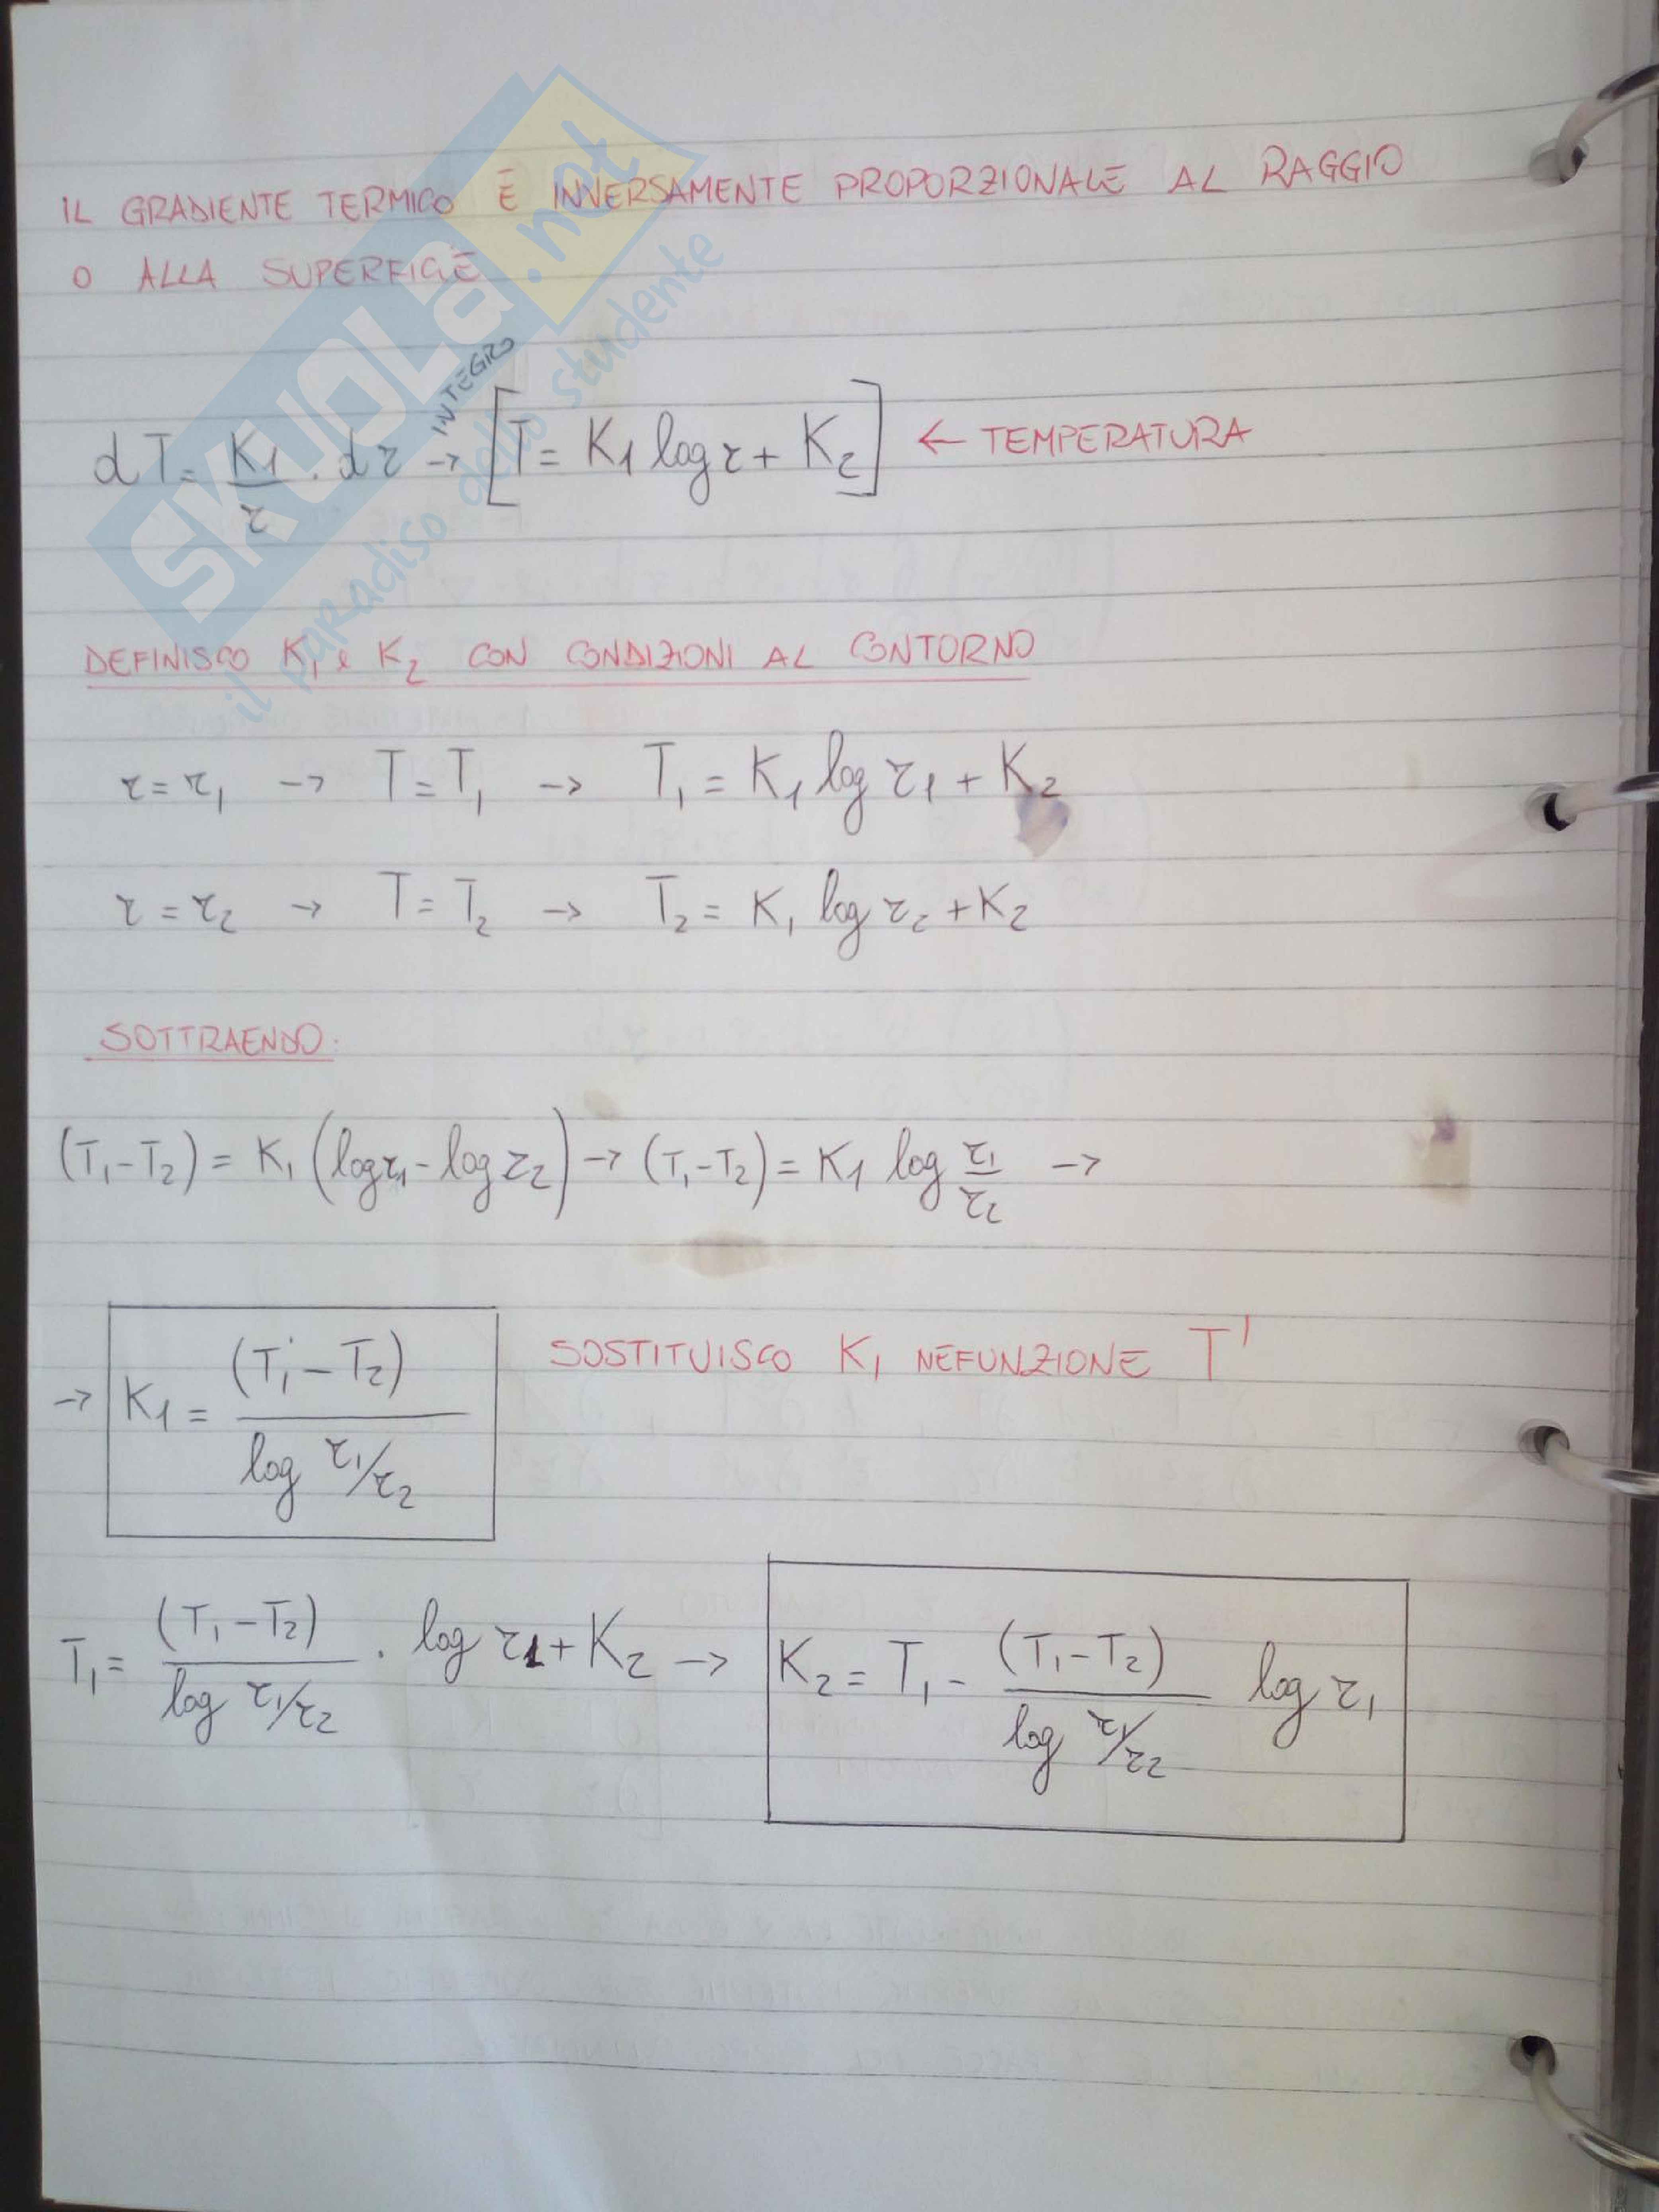 IL GRADIENTE TERMICO È INVERSAMENTE PROPORZIONALE AL RAGGIO
O ALLA SUPERFICIE
dT = K1/r · dr → INTEGRO [T = K1 log r + K2] ← TEMPERATURA
DEFINISCO K1 e K2 CON CONDIZIONI AL CONTORNO
r = r1 → T = T1 → T1 = K1 log r1 + K2
r = r2 → T = T2 → T2 = K1 log r2 + K2
SOTTRAENDO:
(T1 - T2) = K1 (log r1 - log r2) → (T1 - T2) = K1 log r1/r2 →
→ K1 = (T1 - T2) / log r1/r2 SOSTITUISCO K1 NEFUNZIONE T'
T1 = (T1 - T2) / log r1/r2 · log r1 + K2 → K2 = T1 - (T1 - T2) / log r1/r2 log r1
SKUOLa.net
il paradiso dello studente